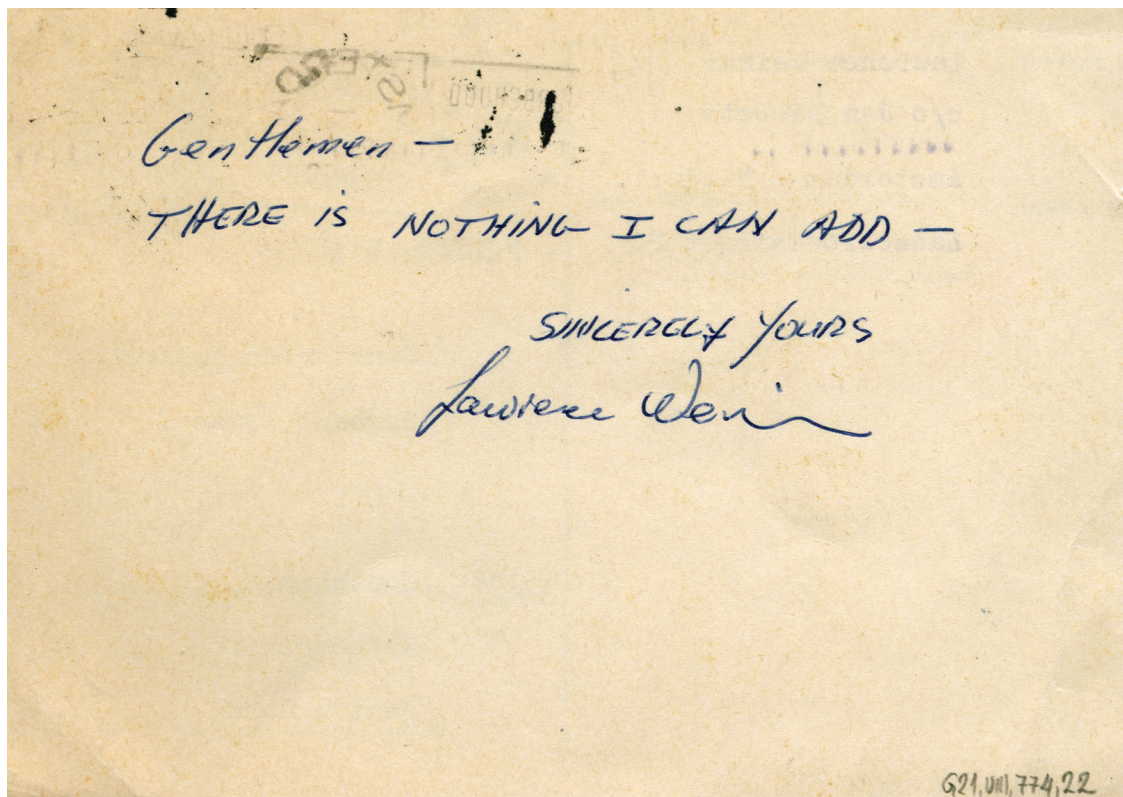 Gentlemen —
THERE IS NOTHING I CAN ADD —
SINCERELY YOURS
Lawrence Weiner
G21,VIII,774,22